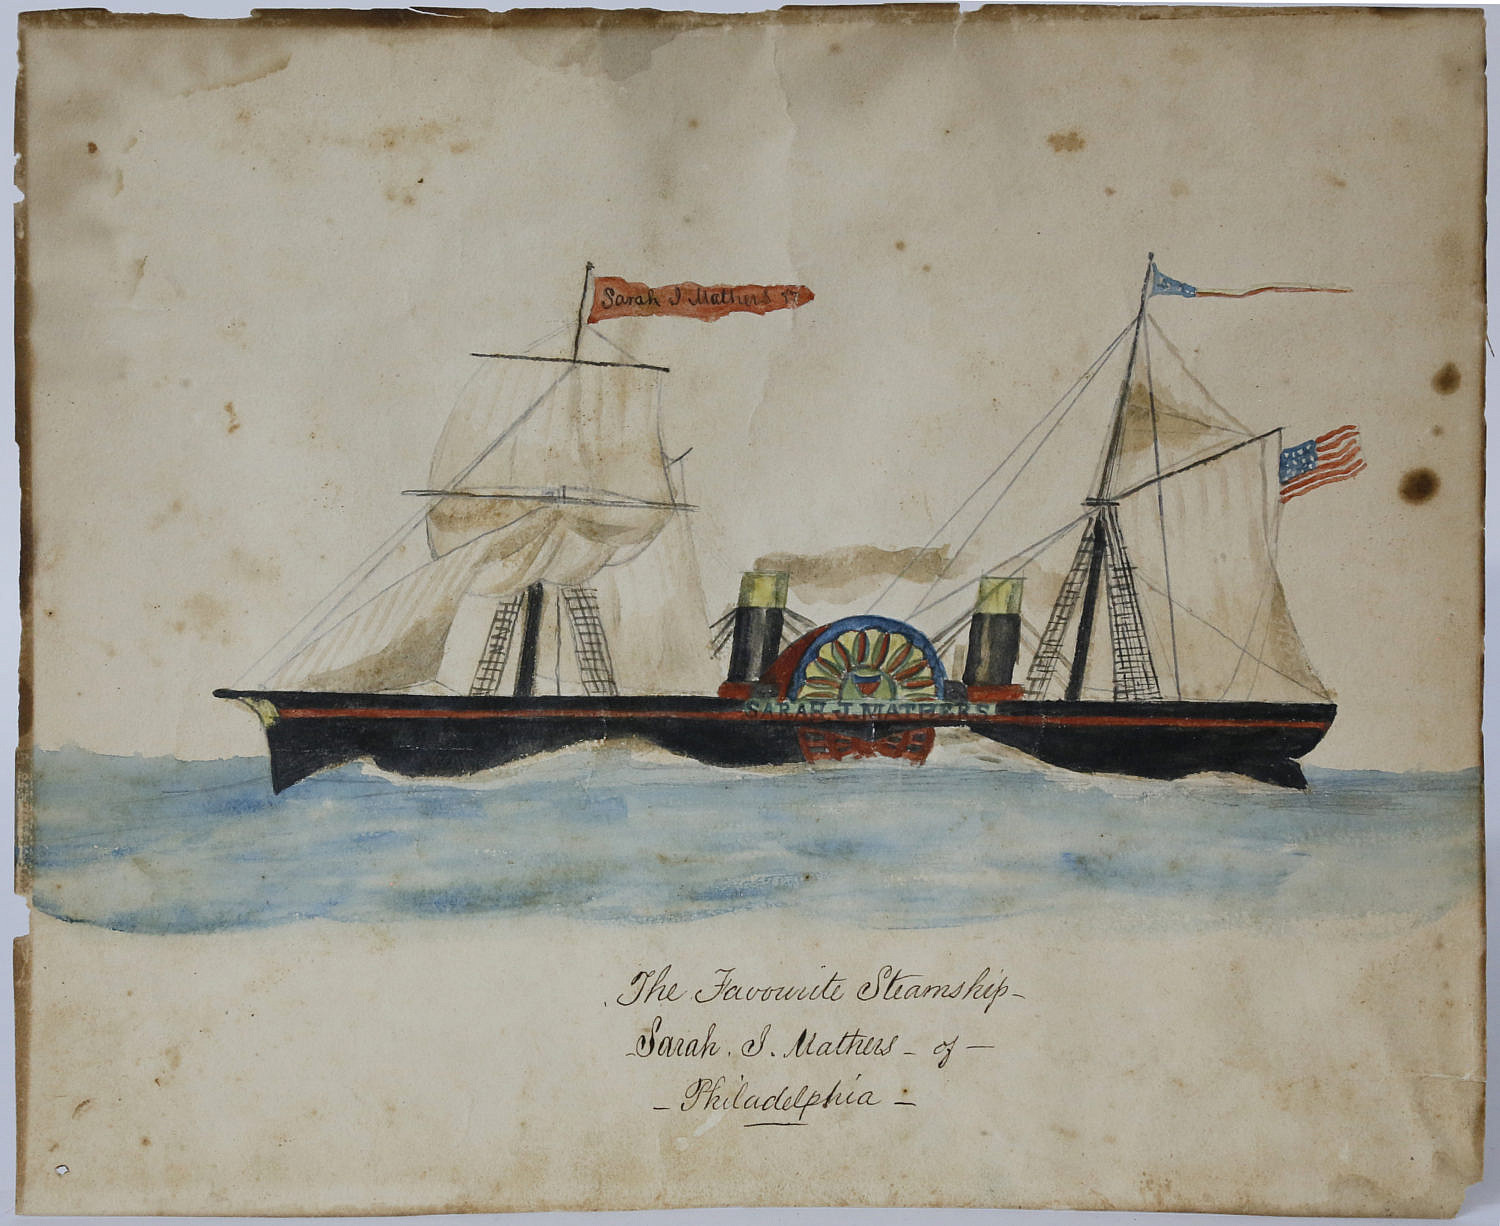 Sarah J Mathers
SARAH-J. MATHERS
The Favourite Steamship-
-Sarah. J. Mathers - of -
- Philadelphia -